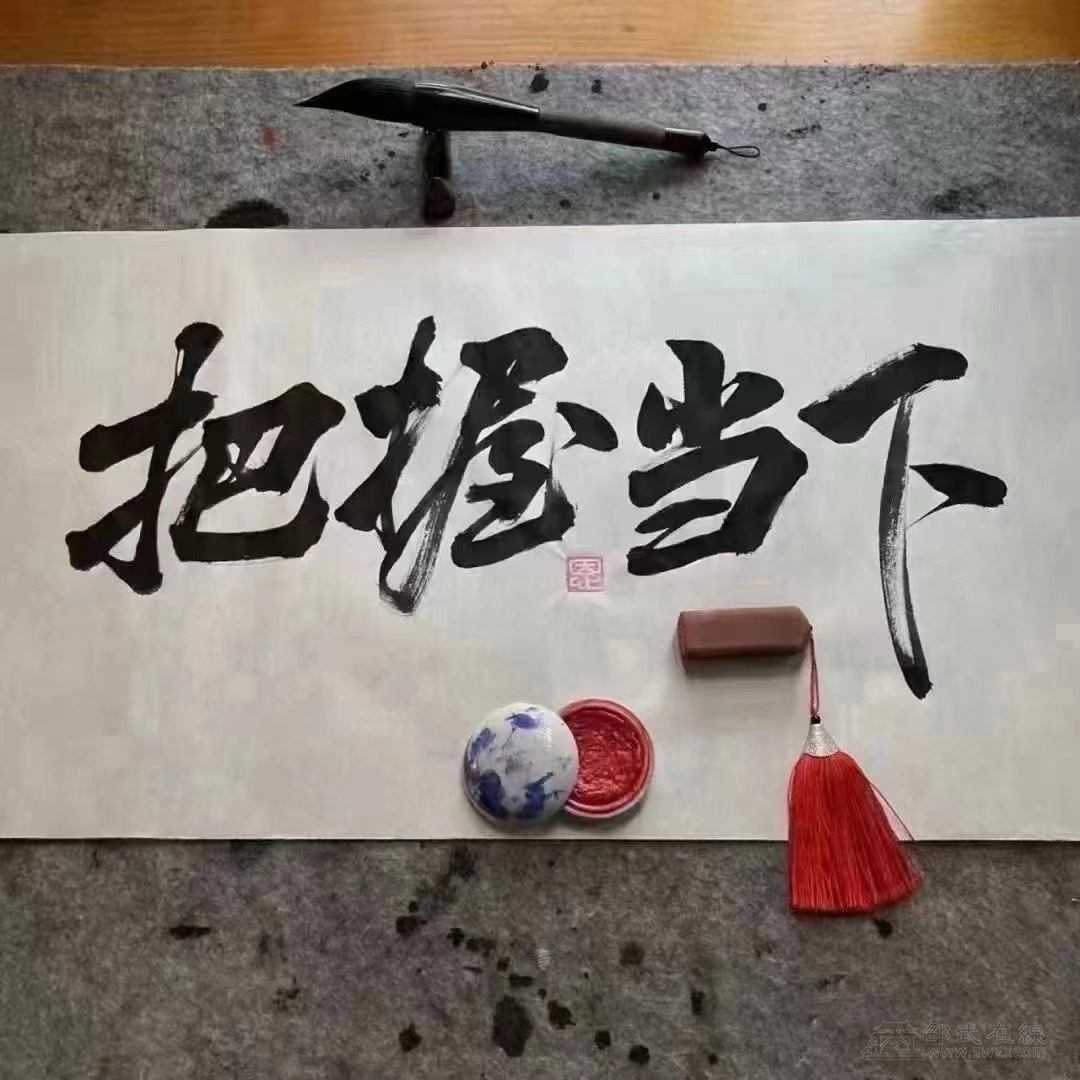 把握当下
邵武在線
www.swzx.com